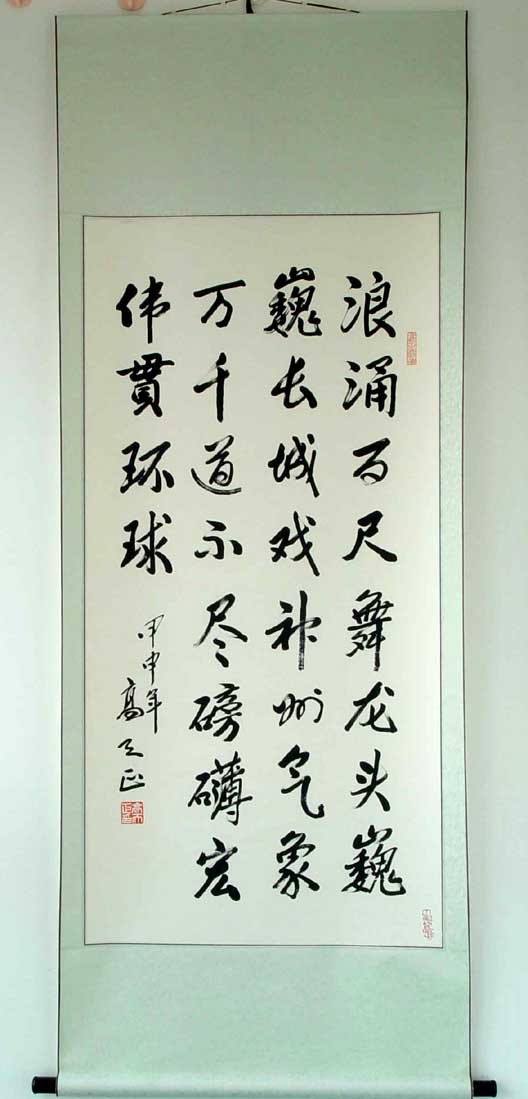 浪涌百尺舞龙头巍
巍长城戏神州气象
万千道不尽磅礴宏
伟贯环球
甲申年高天正